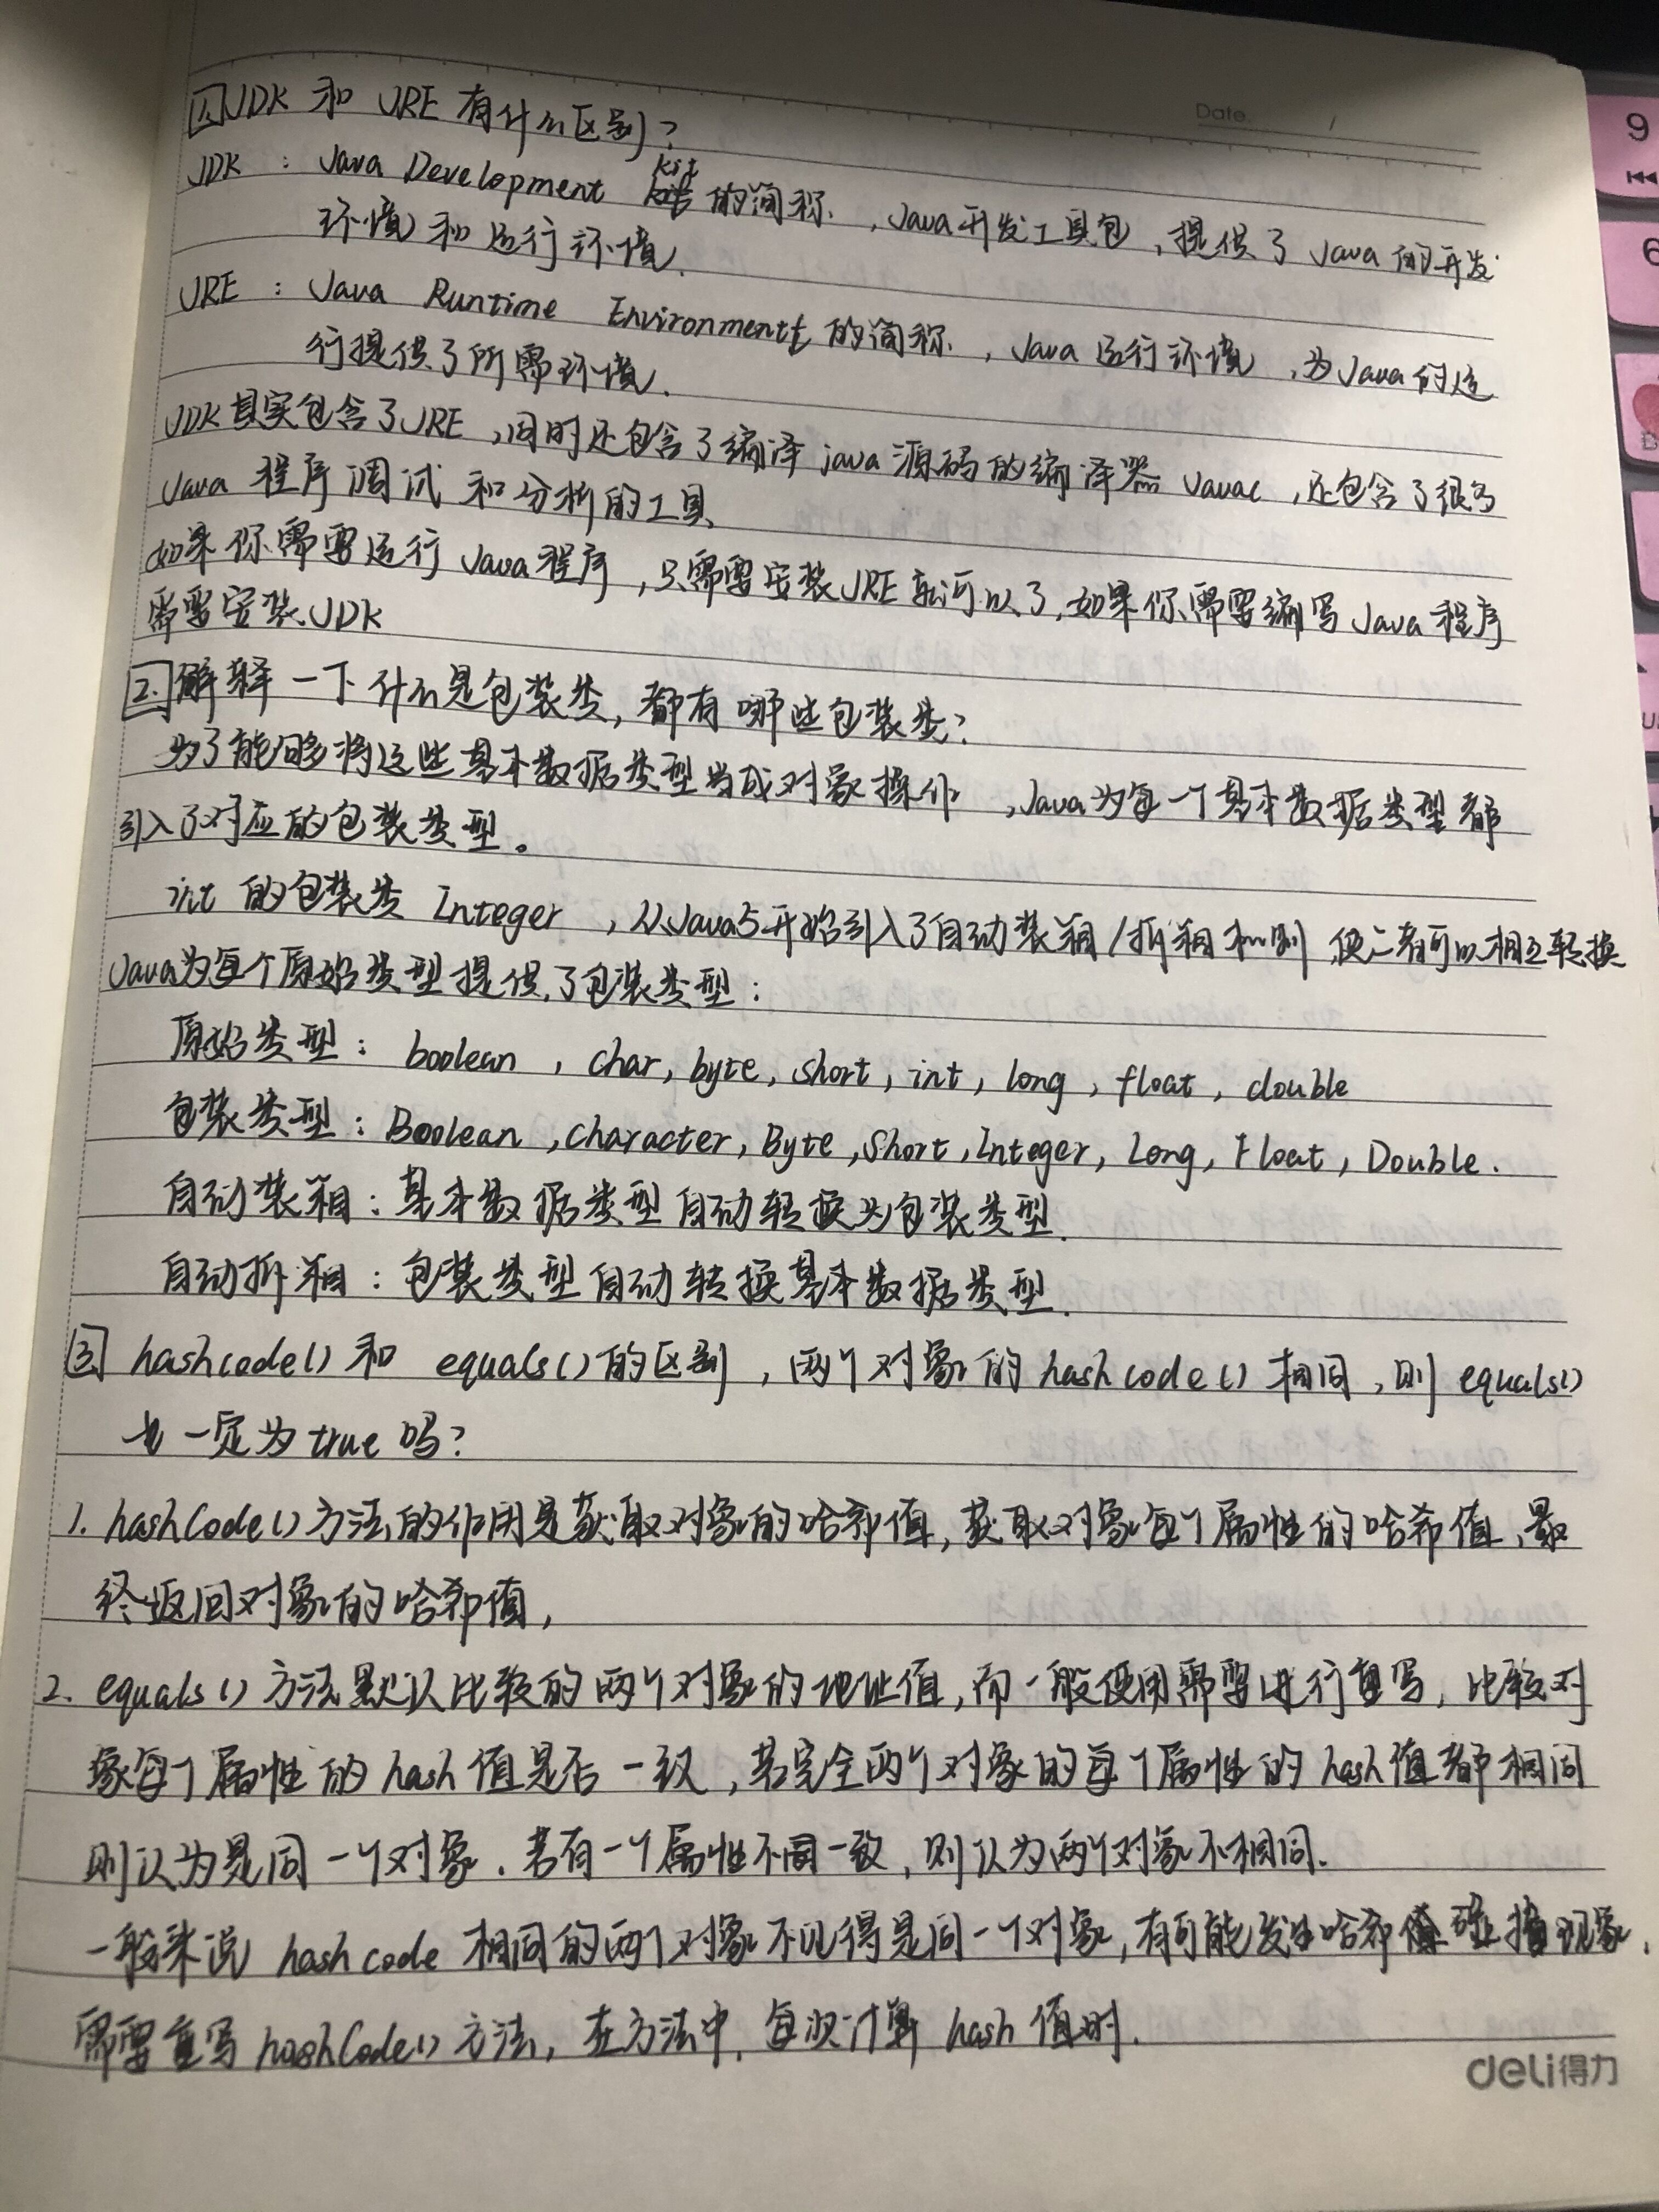 Date /
1. JDK 和 JRE 有什么区别?
JDK : Java Development kit 的简称,Java开发工具包,提供了 Java 的开发
环境和运行环境.
JRE : Java Runtime Environment 的简称,Java 运行环境,为Java的运
行提供了所需环境.
JDK其实包含了JRE,同时还包含了编译java源码的编译器Javac,还包含了很多
Java 程序调试和分析的工具
如果你需要运行Java程序,只需要安装JRE就可以了,如果你需要编写Java程序
需要安装JDK
2. 解释一下什么是包装类,都有哪些包装类?
为了能够将这些基本数据类型当成对象操作,Java为每一个基本数据类型都
引入了对应的包装类型。
int 的包装类 Integer,从Java5开始引入了自动装箱/拆箱机制,使二者可以相互转换
Java为每个原始类型提供了包装类型:
原始类型: boolean, char, byte, short, int, long, float, double
包装类型: Boolean, Character, Byte, Short, Integer, Long, Float, Double.
自动装箱: 基本数据类型自动转换为包装类型.
自动拆箱: 包装类型自动转换基本数据类型.
3. hashcode() 和 equals() 的区别,两个对象的hashcode()相同,则 equals()
也一定为true吗?
1. hashCode()方法的作用是获取对象的哈希值,获取对象每个属性的哈希值,最
终返回对象的哈希值,
2. equals()方法默认比较的两个对象的地址值,而一般使用需要进行重写,比较对
象每个属性的hash值是否一致,若完全两个对象的每个属性的hash值都相同
则认为是同一个对象.若有一个属性不一致,则认为两个对象不相同.
一般来说 hashcode 相同的两个对象不见得是同一个对象,有可能发生哈希碰撞现象,
需要重写hashCode()方法,在方法中,每次计算hash值时.
deli得力